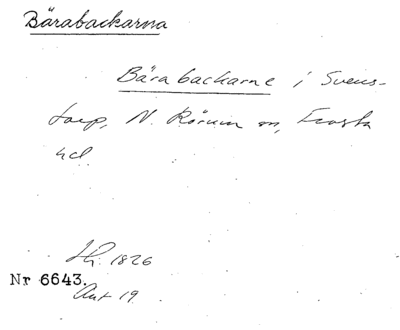 Bärabackarna
Bärabackarne i Svens-
torp, N. Rörum sn, Frosta
hd.
1826
Nr 6643.
Ant 19